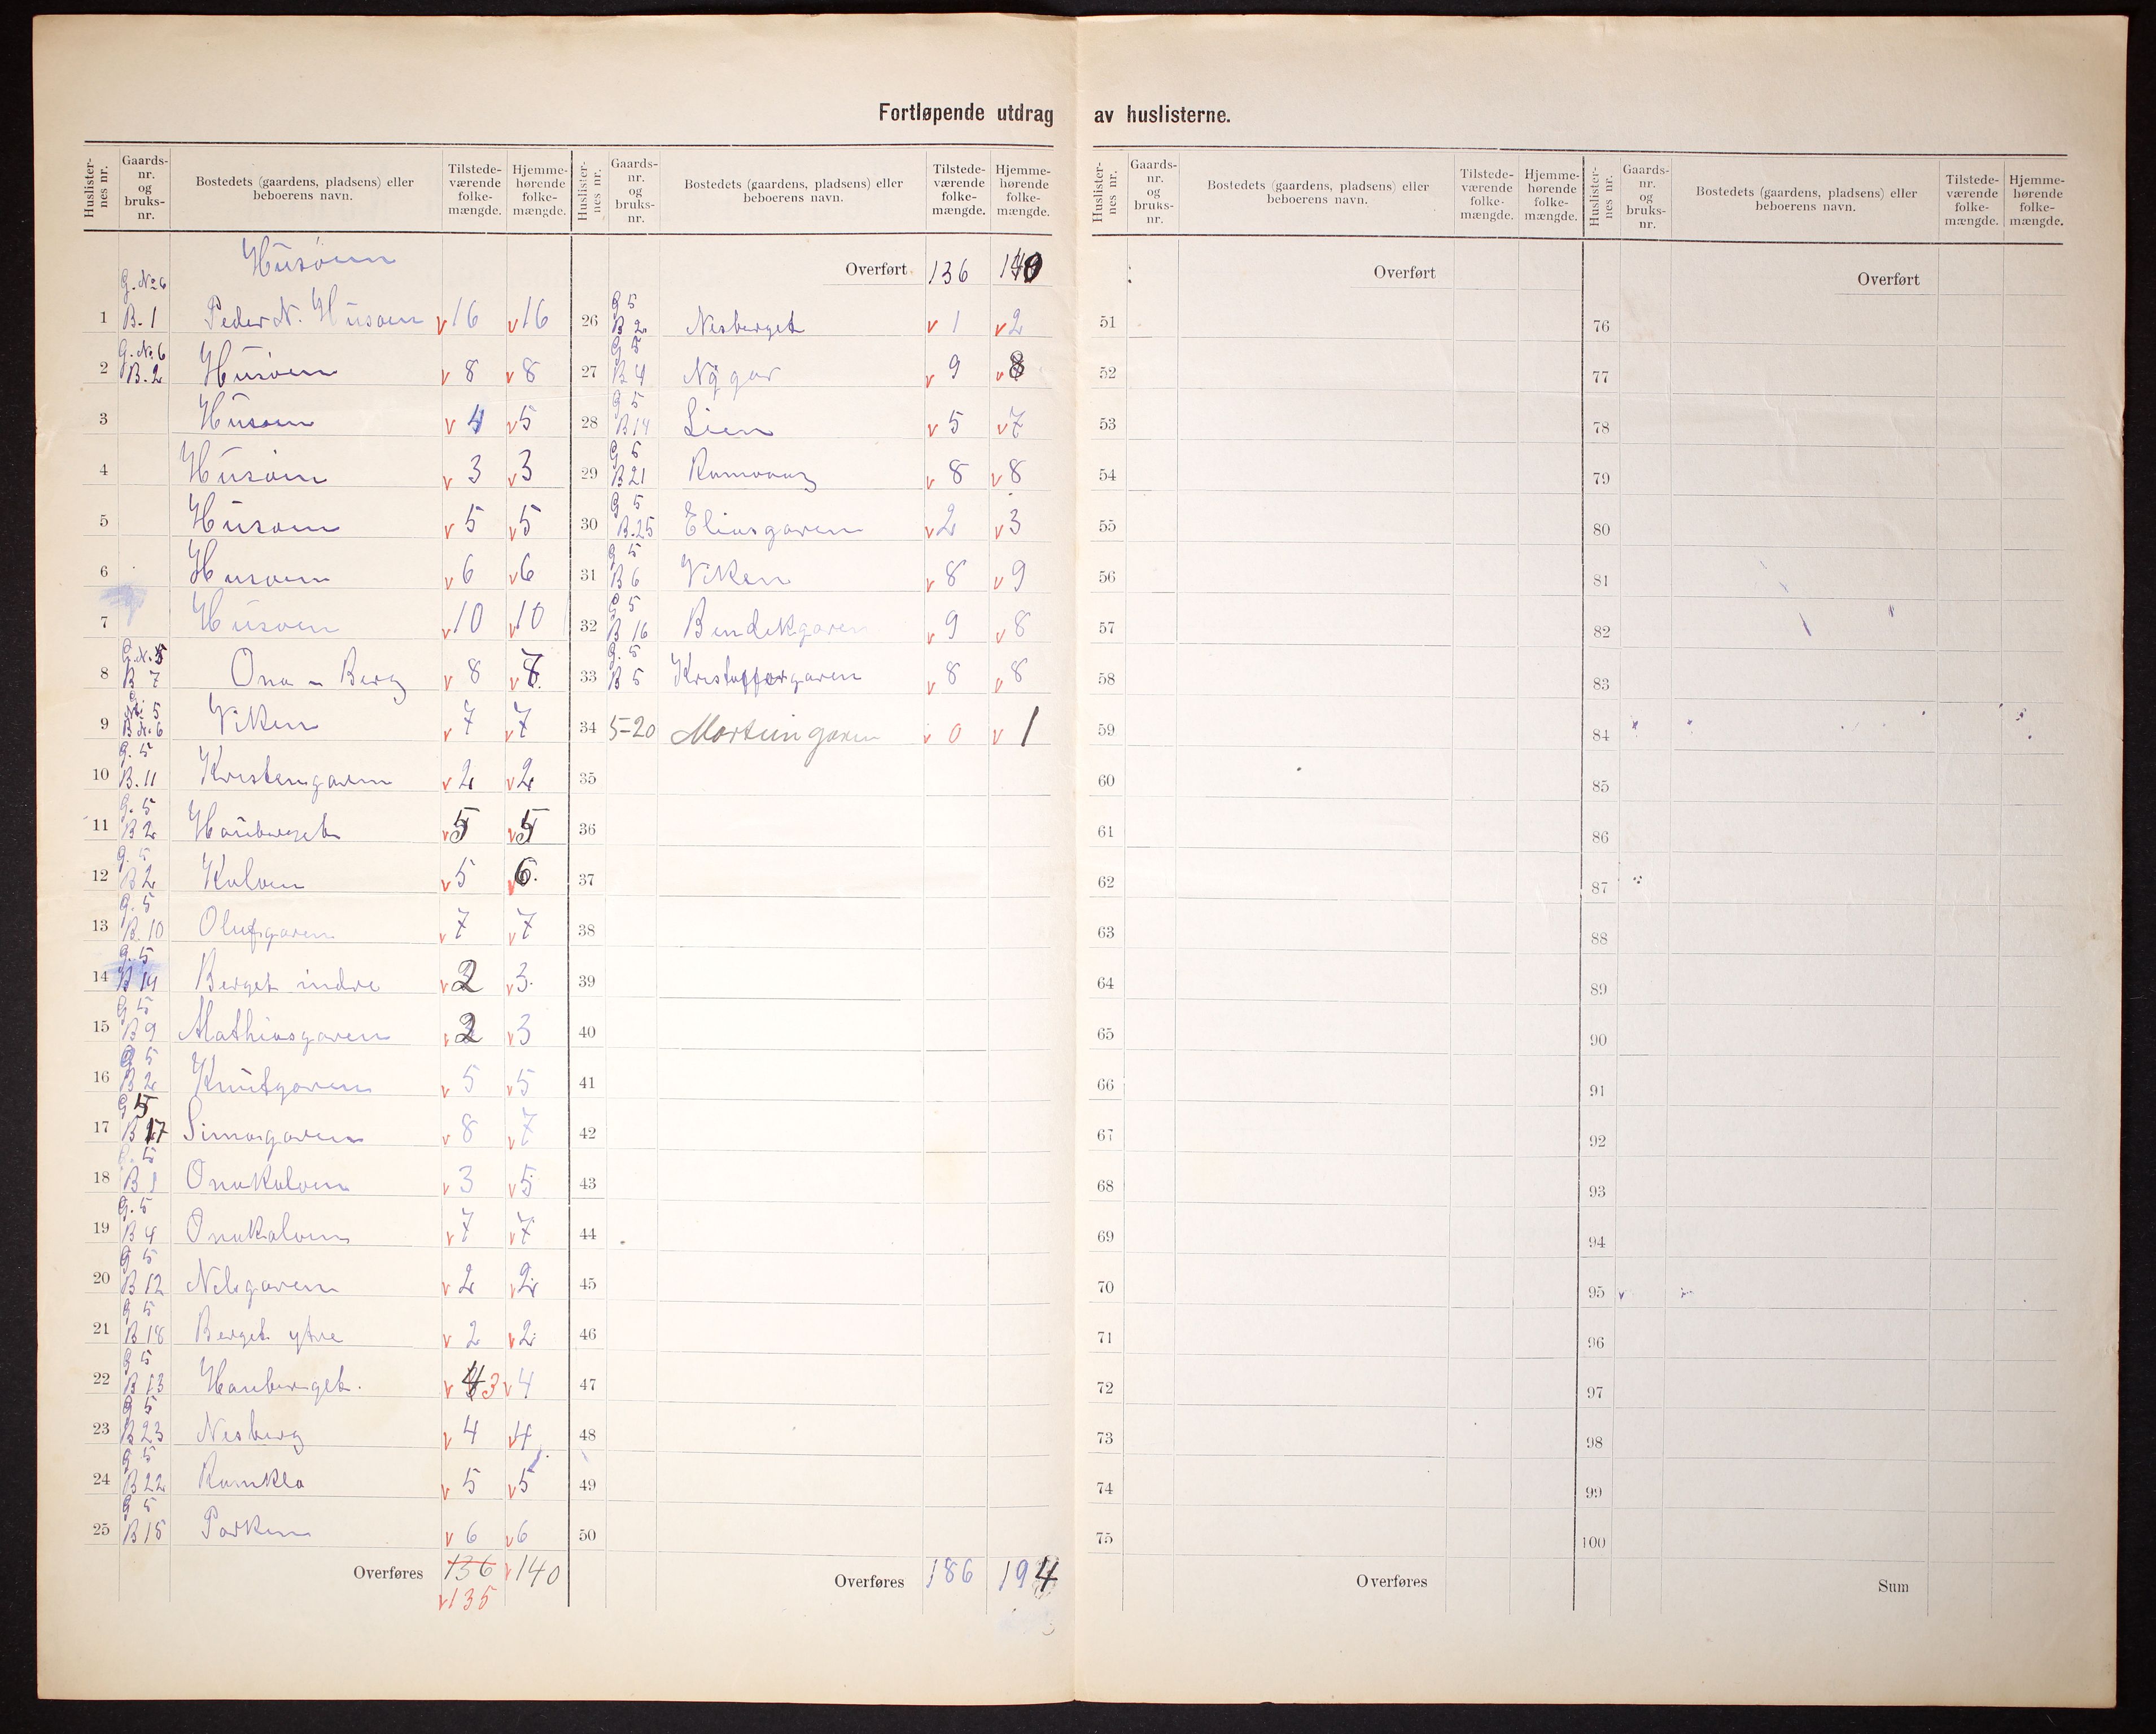 Fortløpende utdrag av huslisterne.
Huslister-nes nr. Gaards-nr. og bruks-nr. Bostedets (gaardens, pladsens) eller beboerens navn. Tilstede-værende folke-mængde. Hjemme-hørende folke-mængde.
Husøen
1 G. No 6 B. 1 Peder N. Husøen v 16 v 16
2 G. No. 6 B. 2 Husøen v 8 v 8
3 Husøen v 4 v 5
4 Husøen v 3 v 3
5 Husøen v 5 v 5
6 Husøen v 6 v 6
7 Husøen v 10 v 10
8 G. N. 5 B 7 Ona - Berg v 8 v 7
9 G. N. 5 B N. 6 Viken v 7 v 7
10 G. 5 B. 11 Kristengaren v 2 v 2
11 G. 5 B 2 Hauberget v 5 v 5
12 G. 5 B 2 Kalven v 5 v 6.
13 G. 5 B. 10 Olufgaren v 7 v 7
14 G. 5 B 14 Berget indre v 2 v 3.
15 G 5 B 9 Mathiasgaren v 2 v 3
16 G 5 B 2 Knutgaren v 5 v 5
17 G 5 B 17 Simagaren v 8 v 7
18 G. 5 B 1 Onakalven v 3 v 5
19 G. 5 B 4 Onakalven v 7 v 7
20 G 5 B 12 Nelsgaren v 2 v 2
21 G 5 B 18 Berget ytre v 2 v 2
22 G 5 B 13 Hauberget. v 4 3 v 4
23 G 5 B 23 Nesberg v 4 v 4
24 G 5 B 22 Ramkleo v 5 v 5
25 G 5 B 15 Parken v 6 v 6
Overføres 136 v 140
v 135
Huslister-nes nr. Gaards-nr. og bruks-nr. Bostedets (gaardens, pladsens) eller beboerens navn. Tilstede-værende folke-mængde. Hjemme-hørende folke-mængde.
Overført 136 140
26 G 5 B 2 Nesberget v 1 v 2
27 G 5 B 4 Nygar v 9 v 8
28 G 5 B 14 Lien v 5 v 7
29 G 5 B 21 Ramvaag v 8 v 8
30 G 5 B. 25 Eliasgaren v 2 v 3
31 G 5 B 6 Viken v 8 v 9
32 G 5 B 16 Bendikgaren v 9 v 8
33 G. 5 B 5 Kristoffergaren v 8 v 8
34 5-20 Martingaren v 0 v 1
35
36
37
38
39
40
41
42
43
44
45
46
47
48
49
50
Overføres 186 194
Huslister-nes nr. Gaards-nr. og bruks-nr. Bostedets (gaardens, pladsens) eller beboerens navn. Tilstede-værende folke-mængde. Hjemme-hørende folke-mængde.
Overført
51
52
53
54
55
56
57
58
59
60
61
62
63
64
65
66
67
68
69
70
71
72
73
74
75
Overføres
Huslister-nes nr. Gaards-nr. og bruks-nr. Bostedets (gaardens, pladsens) eller beboerens navn. Tilstede-værende folke-mængde. Hjemme-hørende folke-mængde.
Overført
76
77
78
79
80
81
82
83
84
85
86
87
88
89
90
91
92
93
94
95
96
97
98
99
100
Sum